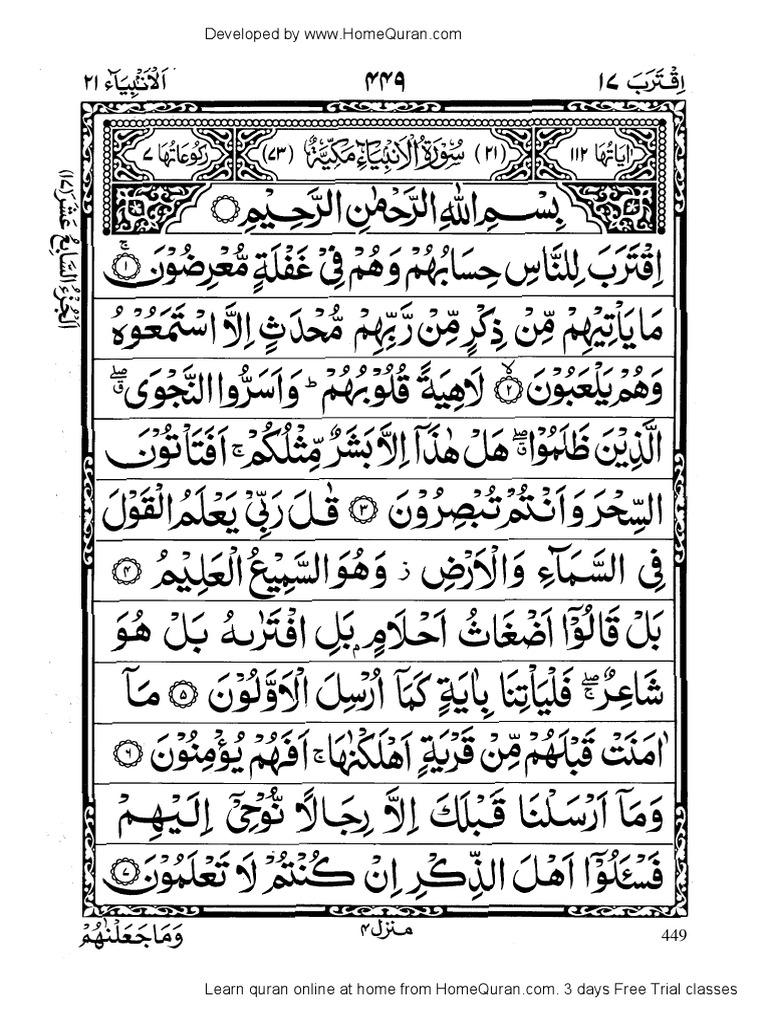 Developed by www.HomeQuran.com
اِقْتَرَبَ ١٧ ۴۴۹ اَلْاَنْۢبِيَآء ٢١
اٰيَاتُهَا ١١٢ (٢١) سُوْرَةُ الْاَنْۢبِيَآءِ مَكِّيَّةٌ (٧٣) رُكُوْعَاتُهَا ٧
بِسْمِ اللّٰهِ الرَّحْمٰنِ الرَّحِيْمِ
اِقْتَرَبَ لِلنَّاسِ حِسَابُهُمْ وَهُمْ فِيْ غَفْلَةٍ مُّعْرِضُوْنَ ۚ ١
مَا يَاْتِيْهِمْ مِّنْ ذِكْرٍ مِّنْ رَّبِّهِمْ مُّحْدَثٍ اِلَّا اسْتَمَعُوْهُ
وَهُمْ يَلْعَبُوْنَ ۙ ٢ لَاهِيَةً قُلُوْبُهُمْ ؕ وَاَسَرُّوا النَّجْوَى ۖ ق
الَّذِيْنَ ظَلَمُوْا ۖ ق هَلْ هٰذَاۤ اِلَّا بَشَرٌ مِّثْلُكُمْ ۚ اَفَتَاْتُوْنَ
السِّحْرَ وَاَنْتُمْ تُبْصِرُوْنَ ٣ قٰلَ رَبِّيْ يَعْلَمُ الْقَوْلَ
فِي السَّمَآءِ وَالْاَرْضِ ز وَهُوَ السَّمِيْعُ الْعَلِيْمُ ۴
بَلْ قَالُوْۤا اَضْغَاثُ اَحْلَامٍۭ بَلِ افْتَرٰىهُ بَلْ هُوَ
شَاعِرٌ ۖۚ فَلْيَاْتِنَا بِاٰيَةٍ كَمَاۤ اُرْسِلَ الْاَوَّلُوْنَ ۵ مَاۤ
اٰمَنَتْ قَبْلَهُمْ مِّنْ قَرْيَةٍ اَهْلَكْنٰهَا ۚ اَفَهُمْ يُؤْمِنُوْنَ ۶
وَمَاۤ اَرْسَلْنَا قَبْلَكَ اِلَّا رِجَالًا نُّوْحِيْۤ اِلَيْهِمْ
فَسْـَٔلُوْۤا اَهْلَ الذِّكْرِ اِنْ كُنْتُمْ لَا تَعْلَمُوْنَ ٧
اَلْجُزْءُ السَّابِعُ عَشَرَ (١٧)
منزل ۴
وَمَا جَعَلْنٰهُمْ
449
Learn quran online at home from HomeQuran.com. 3 days Free Trial classes